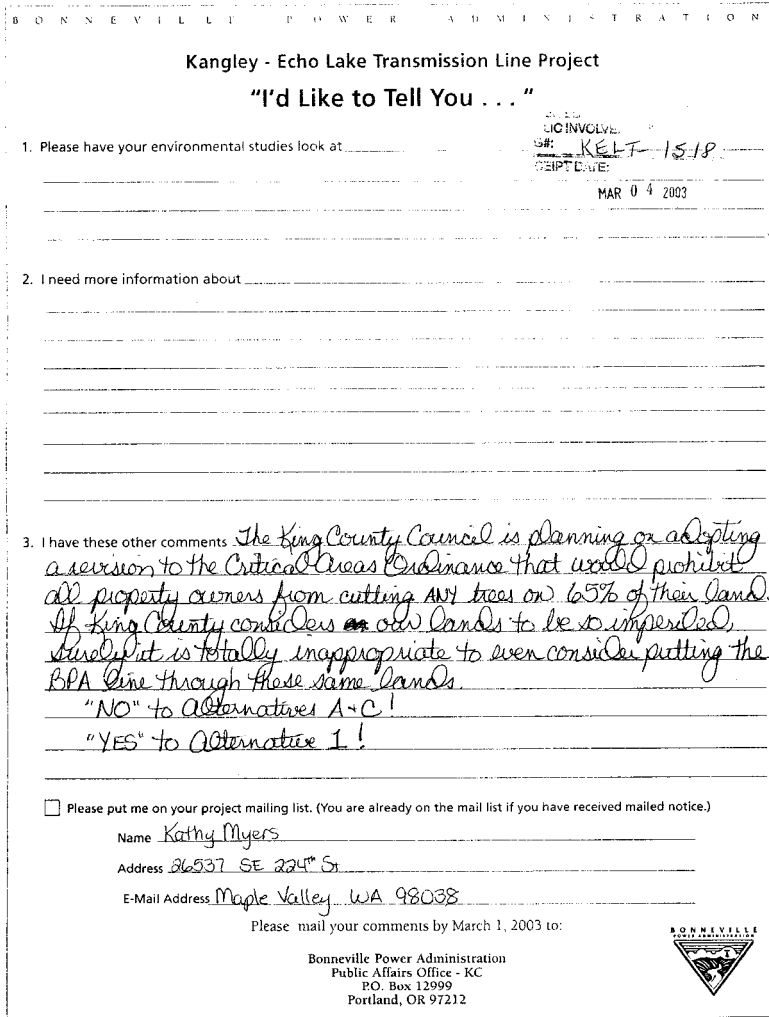 BONNEVILLE POWER ADMINISTRATION
Kangley - Echo Lake Transmission Line Project
"I'd Like to Tell You . . . "
LIC INVOLVE
G#: KELT-1518
CEIPT DATE:
MAR 04 2003
1. Please have your environmental studies look at
2. I need more information about
3. I have these other comments The King County Council is planning on adopting
a revision to the Critical Areas Ordinance that would prohibit
all property owners from cutting ANY trees on 65% of their land.
If King County considers our lands to be so imperiled,
surely it is totally inappropriate to even consider putting the
BPA line through these same lands.
"NO" to Alternatives A+C!
"YES" to Alternative 1!
Please put me on your project mailing list. (You are already on the mail list if you have received mailed notice.)
Name Kathy Myers
Address 26537 SE 224th St
E-Mail Address Maple Valley WA 98038
Please mail your comments by March 1, 2003 to:
Bonneville Power Administration
Public Affairs Office - KC
P.O. Box 12999
Portland, OR 97212
BONNEVILLE
POWER ADMINISTRATION